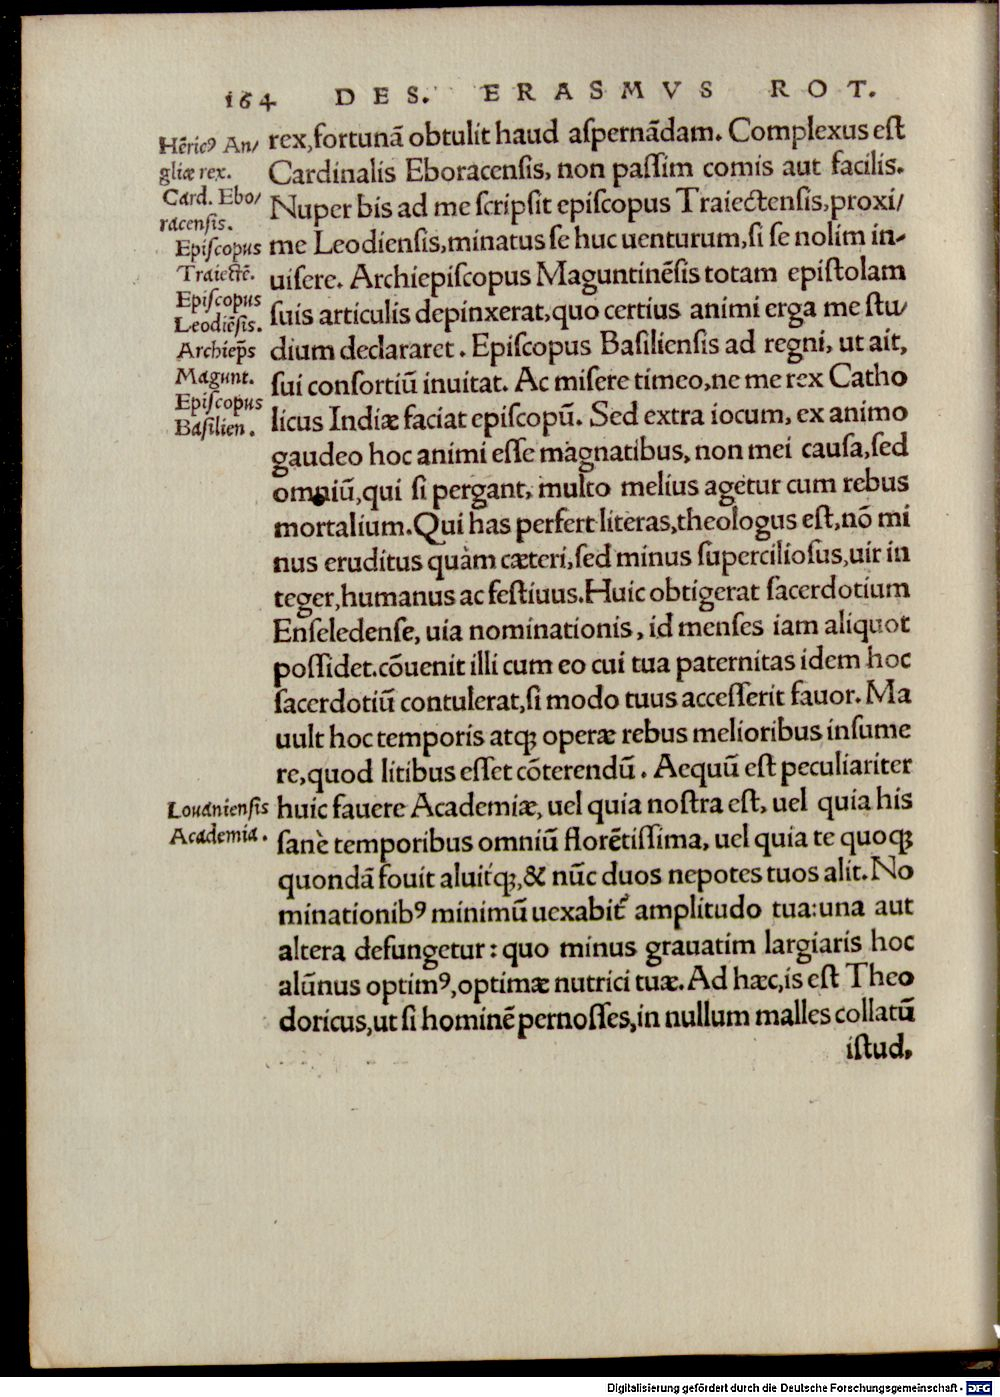 164 DES. ERASMVS ROT.
Hēricꝰ An/
gliæ rex.
Card. Ebo/
racenſis.
Epiſcopus
Traiectē.
Epiſcopus
Leodiēſis.
Archiep̄s
Magunt.
Epiſcopus
Baſilien.
rex,fortunā obtulit haud aſpernādam. Complexus eſt
Cardinalis Eboracenſis, non paſſim comis aut facilis.
Nuper bis ad me ſcripſit epiſcopus Traiectenſis,proxi/
me Leodienſis,minatus ſe huc uenturum,ſi ſe nolim in-
uiſere. Archiepiſcopus Maguntinēſis totam epiſtolam
ſuis articulis depinxerat,quo certius animi erga me ſtu/
dium declararet. Epiſcopus Baſilienſis ad regni, ut ait,
ſui conſortiū inuitat. Ac miſere timeo,ne me rex Catho
licus Indiæ faciat epiſcopū. Sed extra iocum, ex animo
gaudeo hoc animi eſſe magnatibus, non mei cauſa,ſed
omniū,qui ſi pergant, multo melius agetur cum rebus
mortalium.Qui has perfert literas,theologus eſt,nō mi
nus eruditus quàm cæteri,ſed minus ſupercilioſus,uir in
teger,humanus ac feſtiuus.Huic obtigerat ſacerdotium
Enſeledenſe, uia nominationis, id menſes iam aliquot
poſſidet.cōuenit illi cum eo cui tua paternitas idem hoc
ſacerdotiū contulerat,ſi modo tuus acceſſerit fauor. Ma
uult hoc temporis atqꝫ operæ rebus melioribus inſume
re,quod litibus eſſet cōterendū. Aequū eſt peculiariter
Louanienſis
Academia.
huic fauere Academiæ, uel quia noſtra eſt, uel quia his
ſanè temporibus omniū florētiſſima, uel quia te quoqꝫ
quondā fouit aluitqꝫ,& nūc duos nepotes tuos alit. No
minationibꝰ minimū uexabit᷑ amplitudo tua:una aut
altera defungetur: quo minus grauatim largiaris hoc
alūnus optimꝰ,optimæ nutrici tuæ. Ad hæc,is eſt Theo
doricus,ut ſi hominē pernoſſes,in nullum malles collatū
iſtud,
Digitalisierung gefördert durch die Deutsche Forschungsgemeinschaft - DFG